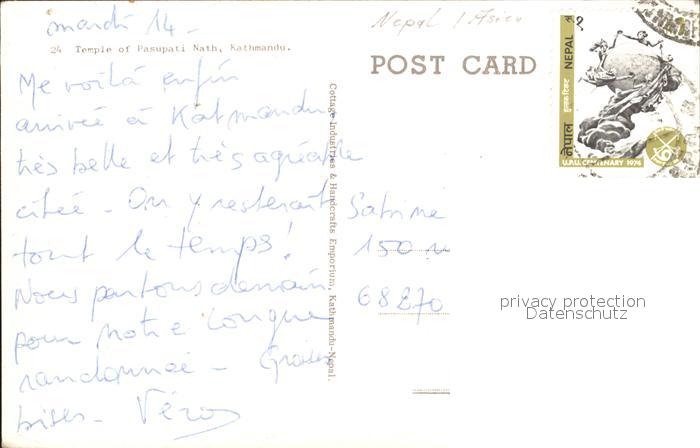 mardi 14 -
24 Temple of Pasupati Nath, Kathmandu.
Me voilà enfin
arrivée à Katmandu
très belle et très agréable
citée - On y resterait
tout le temps!
Nous partons demain
pour notre longue
randonnée - Grosses
bises - Véro
Cottage Industries & Handcrafts Emporium, Kathmandu-Nepal.
Nepal / Asien
POST CARD
नेपाल
हुलाक टिकट
NEPAL
१
U.P.U. CENTENARY 1974
Sabine
150
68270
privacy protection
Datenschutz